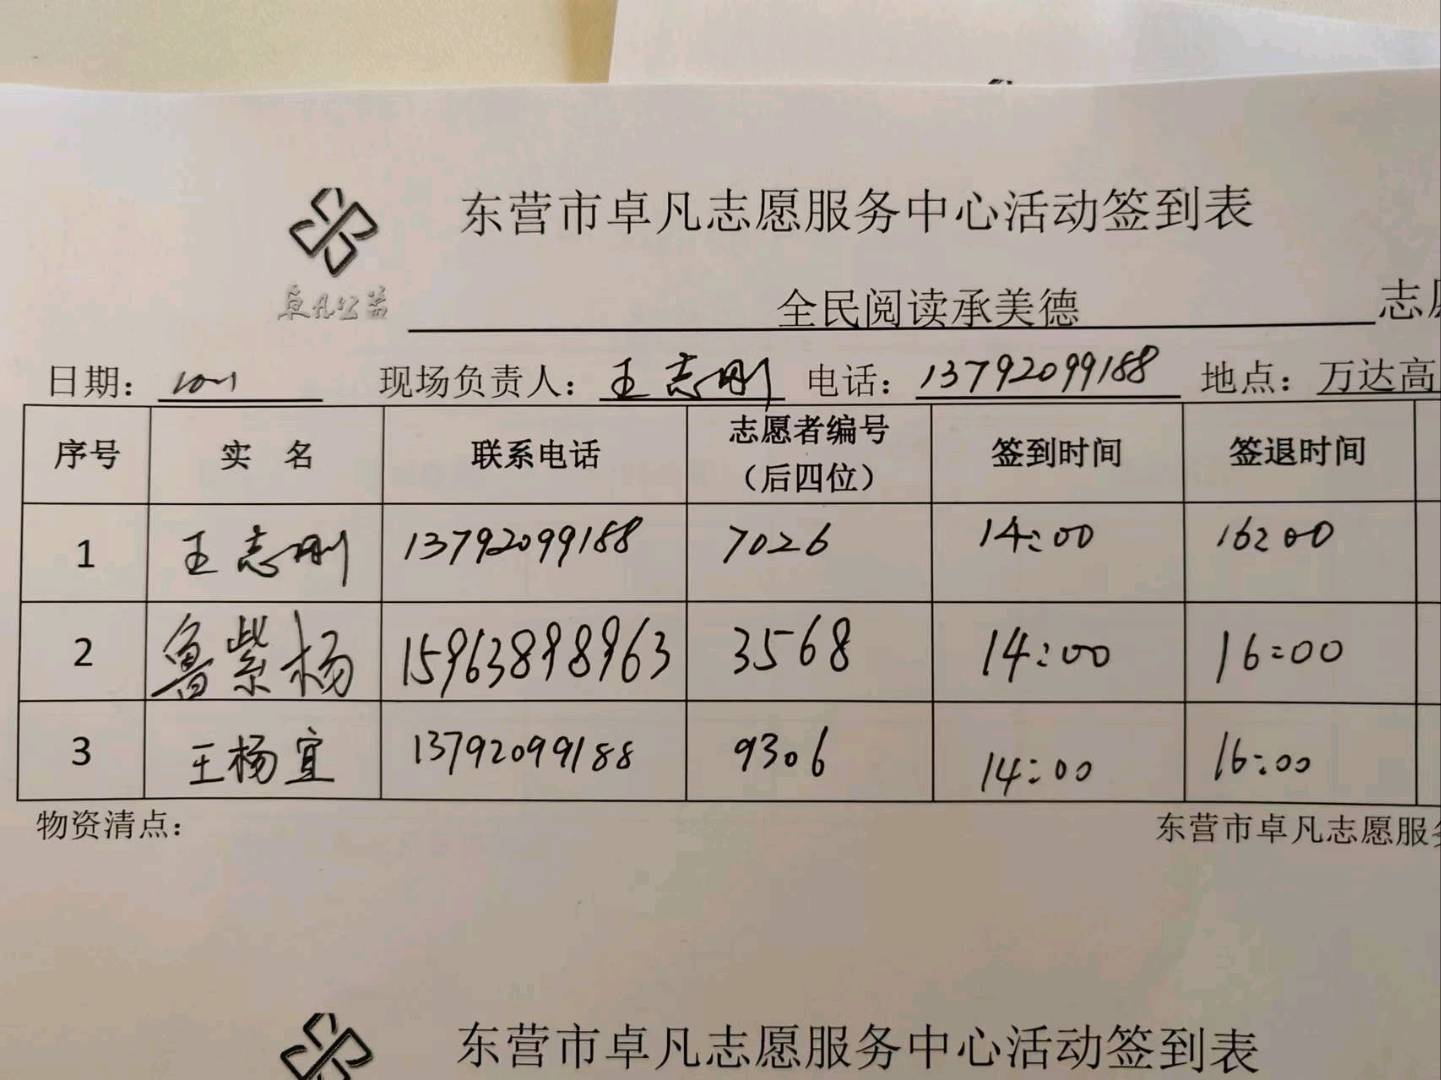 东营市卓凡志愿服务中心活动签到表
卓凡公益
全民阅读承美德 志
日期： 现场负责人：王志刚 电话：13792099188 地点：万达高
序号 实 名 联系电话 志愿者编号（后四位） 签到时间 签退时间
1 王志刚 13792099188 7026 14:00 16:00
2 鲁紫杨 15963898963 3568 14:00 16:00
3 王杨宜 13792099188 9306 14:00 16:00
物资清点： 东营市卓凡志愿服
东营市卓凡志愿服务中心活动签到表